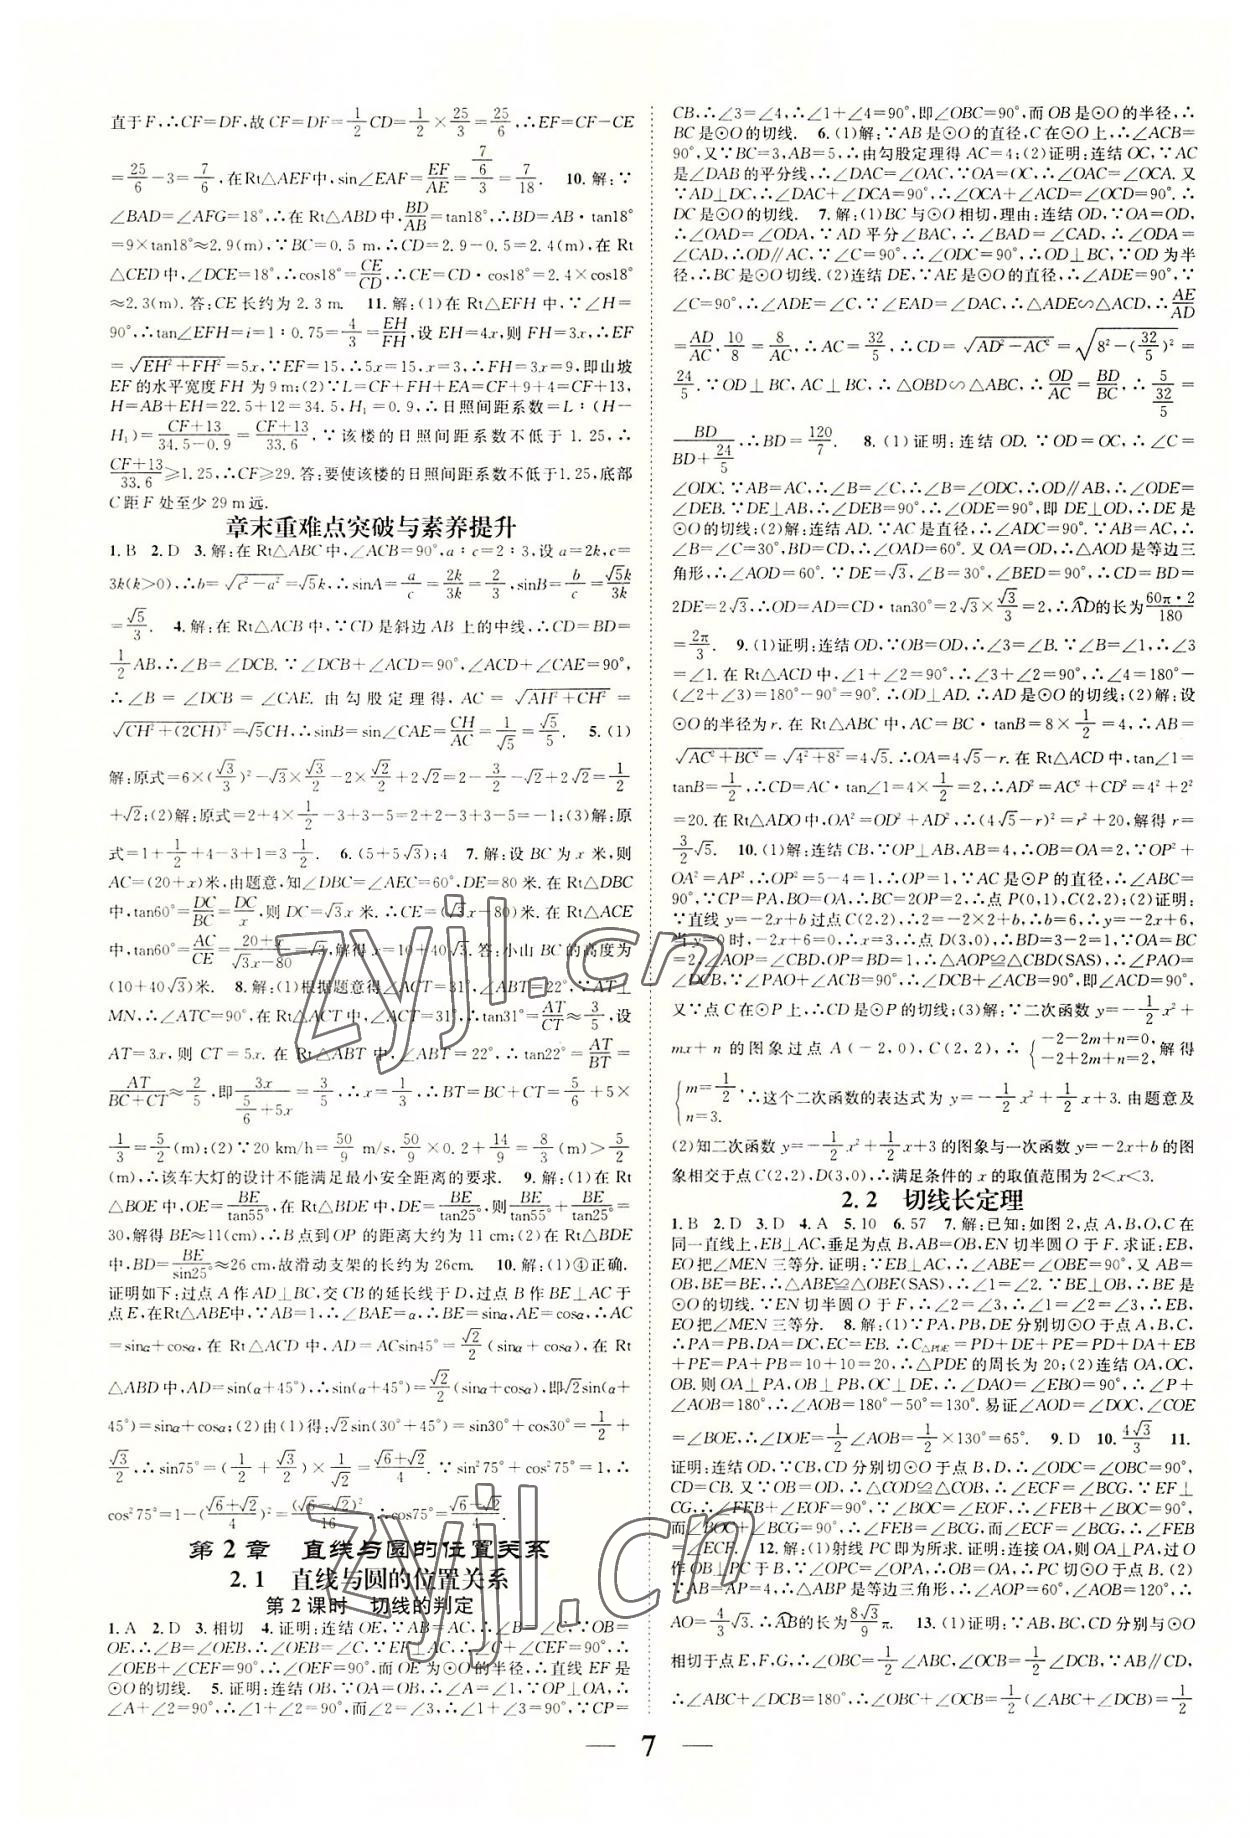 直于F,∴CF=DF,故CF=DF=1/2CD=1/2×25/3=25/6,∴EF=CF-CE
=25/6-3=7/6,在Rt△AEF中,sin∠EAF=EF/AE=(7/6)/3=7/18. 10.解:∵
∠BAD=∠AFG=18°,∴在Rt△ABD中,BD/AB=tan18°,∴BD=AB·tan18°
=9×tan18°≈2.9(m),∵BC=0.5 m,∴CD=2.9-0.5=2.4(m),在Rt
△CED中,∠DCE=18°,∴cos18°=CE/CD,∴CE=CD·cos18°≈2.4×cos18°
≈2.3(m).答:CE长约为2.3 m. 11.解:(1)在Rt△EFH中,∵∠H=
90°,∴tan∠EFH=i=1∶0.75=4/3=EH/FH,设EH=4x,则FH=3x,∴EF
=√(EH²+FH²)=5x,∵EF=15,∴5x=15,x=3,∴FH=3x=9,即山坡
EF的水平宽度FH为9 m;(2)∵L=CF+FH+EA=CF+9+4=CF+13,
H=AB+EH=22.5+12=34.5,H₁=0.9,∴日照间距系数=L∶(H-
H₁)=(CF+13)/(34.5-0.9)=(CF+13)/33.6,∵该楼的日照间距系数不低于1.25,∴
(CF+13)/33.6≥1.25,∴CF≥29.答:要使该楼的日照间距系数不低于1.25,底部
C距F处至少29 m远.
章末重难点突破与素养提升
1.B 2.D 3.解:在Rt△ABC中,∠ACB=90°,a∶c=2∶3,设a=2k,c=
3k(k>0),∴b=√(c²-a²)=√5k,∴sinA=a/c=2k/3k=2/3,sinB=b/c=√5k/3k
=√5/3. 4.解:在Rt△ACB中,∵CD是斜边AB上的中线,∴CD=BD=
1/2AB,∴∠B=∠DCB.∵∠DCB+∠ACD=90°,∠ACD+∠CAE=90°,
∴∠B=∠DCB=∠CAE.由勾股定理得,AC=√(AH²+CH²)=
√(CH²+(2CH)²)=√5CH,∴sinB=sin∠CAE=CH/AC=1/√5=√5/5. 5.(1)
解:原式=6×(√3/3)²-√3×√3/2-2×√2/2+2√2=2-3/2-√2+2√2=1/2
+√2;(2)解:原式=2+4×1/2-3+3-5=2+2-3+3-5=-1;(3)解:原
式=1+1/2+4-3+1=3 1/2. 6.(5+5√3);4 7.解:设BC为x米,则
AC=(20+x)米,由题意,知∠DBC=∠AEC=60°,DE=80米.在Rt△DBC
中,tan60°=DC/BC=DC/x,则DC=√3x米.∴CE=(√3x-80)米.在Rt△ACE
中,tan60°=AC/CE=(20+x)/(√3x-80)=√3,解得x=10+40√3.答:小山BC的高度为
(10+40√3)米. 8.解:(1)根据题意得∠ACT=31°,∠ABT=22°.∵AT⊥
MN,∴∠ATC=90°,在Rt△ACT中,∠ACT=31°,∴tan31°=AT/CT≈3/5,设
AT=3x,则CT=5x.在Rt△ABT中,∠ABT=22°,∴tan22°=AT/BT=
AT/(BC+CT)≈2/5,即3x/(5/6+5x)=3/5,∴x=1/3,∴BT=BC+CT=5/6+5×
1/3=5/2(m);(2)∵20 km/h=50/9 m/s,∴50/9×0.2+14/9=8/3(m)>5/2
(m),∴该车大灯的设计不能满足最小安全距离的要求. 9.解:(1)在Rt
△BOE中,OE=BE/tan55°,在Rt△BDE中,DE=BE/tan25°,则BE/tan55°+BE/tan25°=
30,解得BE≈11(cm),∴B点到OP的距离大约为11 cm;(2)在Rt△BDE
中,BD=BE/sin25°≈26 cm,故滑动支架的长约为26cm. 10.解:(1)④正确.
证明如下:过点A作AD⊥BC,交CB的延长线于D,过点B作BE⊥AC于
点E,在Rt△ABE中,∵AB=1,∴∠BAE=α,∴BE=sinα,AE=cosα,∴AC
=sinα+cosα,在Rt△ACD中,AD=ACsin45°=√2/2(sinα+cosα),在Rt
△ABD中,AD=sin(α+45°),∴sin(α+45°)=√2/2(sinα+cosα),即√2sin(α+
45°)=sinα+cosα;(2)由(1)得:√2sin(30°+45°)=sin30°+cos30°=1/2+
√3/2,∴sin75°=(1/2+√3/2)×1/√2=(√6+√2)/4,∵sin²75°+cos²75°=1,∴
cos²75°=1-((√6+√2)/4)²=(√6-√2)²/16,∴cos75°=(√6-√2)/4.
第2章 直线与圆的位置关系
2.1 直线与圆的位置关系
第2课时 切线的判定
1.A 2.D 3.相切 4.证明:连结OE,∵AB=AC,∴∠B=∠C.∵OB=
OE,∴∠B=∠OEB,∴∠OEB=∠C.∵EF⊥AC,∴∠C+∠CEF=90°,∴
∠OEB+∠CEF=90°.∴∠OEF=90°.而OE为⊙O的半径,∴直线EF是
⊙O的切线. 5.证明:连结OB,∵OA=OB,∴∠A=∠1,∵OP⊥OA,∴
∠A+∠2=90°,∴∠1+∠2=90°,而∠2=∠3,∴∠1+∠3=90°,∵CP=
CB,∴∠3=∠4,∴∠1+∠4=90°,即∠OBC=90°,而OB是⊙O的半径,∴
BC是⊙O的切线. 6.(1)解:∵AB是⊙O的直径,C在⊙O上,∴∠ACB=
90°,又∵BC=3,AB=5,∴由勾股定理得AC=4;(2)证明:连结OC,∵AC
是∠DAB的平分线,∴∠DAC=∠OAC.∵OA=OC,∴∠OAC=∠OCA.又
∵AD⊥DC,∴∠DAC+∠DCA=90°,∴∠OCA+∠ACD=∠OCD=90°.∴
DC是⊙O的切线. 7.解:(1)BC与⊙O相切,理由:连结OD,∵OA=OD,
∴∠OAD=∠ODA,∵AD平分∠BAC,∴∠BAD=∠CAD,∴∠ODA=
∠CAD,∴OD∥AC,∵∠C=90°,∴∠ODC=90°,∴OD⊥BC,∵OD为半
径,∴BC是⊙O切线.(2)连结DE,∵AE是⊙O的直径,∴∠ADE=90°,∵
∠C=90°,∴∠ADE=∠C,∵∠EAD=∠DAC,∴△ADE∽△ACD,∴AE/AD
=AD/AC,10/8=8/AC,∴AC=32/5,∴CD=√(AD²-AC²)=√(8²-(32/5)²)=
24/5.∵OD⊥BC,AC⊥BC,∴△OBD∽△ABC,∴OD/AC=BD/BC,∴5/(32/5)=
BD/(BD+24/5),∴BD=120/7. 8.(1)证明:连结OD.∵OD=OC,∴∠C=
∠ODC.∵AB=AC,∴∠B=∠C,∴∠B=∠ODC,∴OD∥AB,∴∠ODE=
∠DEB.∵DE⊥AB,∴∠DEB=90°,∴∠ODE=90°,即DE⊥OD,∴DE是
⊙O的切线;(2)解:连结AD.∵AC是直径,∴∠ADC=90°.∵AB=AC,∴∠B
=∠C=30°,BD=CD,∴∠OAD=60°.又OA=OD,∴△AOD是等边三
角形,∴∠AOD=60°.∵DE=√3,∠B=30°,∠BED=90°,∴CD=BD=
2DE=2√3,∴OD=AD=CD·tan30°=2√3×√3/3=2,∴AD的长为60π·2/180
=2π/3. 9.(1)证明:连结OD,∵OB=OD,∴∠3=∠B.∵∠B=∠1,∴∠3
=∠1.在Rt△ACD中,∠1+∠2=90°,∴∠3+∠2=90°,∴∠4=180°-
(∠2+∠3)=180°-90°=90°.∴OD⊥AD.∴AD是⊙O的切线;(2)解:设
⊙O的半径为r.在Rt△ABC中,AC=BC·tanB=8×1/2=4,∴AB=
√(AC²+BC²)=√(4²+8²)=4√5.∴OA=4√5-r.在Rt△ACD中,tan∠1=
tanB=1/2,∴CD=AC·tan∠1=4×1/2=2,∴AD²=AC²+CD²=4²+2²
=20.在Rt△ADO中,OA²=OD²+AD²,∴(4√5-r)²=r²+20,解得r=
3/2√5. 10.(1)解:连结CB,∵OP⊥AB,AB=4,∴OB=OA=2,∵OP²+
OA²=AP²,∴OP²=5-4=1,∴OP=1,∵AC是⊙P的直径,∴∠ABC=
90°,∵CP=PA,BO=OA,∴BC=2OP=2,∴点P(0,1),C(2,2);(2)证明:
∵直线y=-2x+b过点C(2,2),∴2=-2×2+b,∴b=6,∴y=-2x+6,
当y=0时,-2x+6=0,∴x=3,∴点D(3,0),∴BD=3-2=1,∵OA=BC
=2,∠AOP=∠CBD,OP=BD=1,∴△AOP≌△CBD(SAS),∴∠PAO=
∠DCB,∵∠PAO+∠ACB=90°,∴∠DCB+∠ACB=90°,即∠ACD=90°,
又∵点C在⊙P上,∴CD是⊙P的切线;(3)解:∵二次函数y=-1/2x²+
mx+n的图象过点A(-2,0),C(2,2),∴{-2-2m+n=0, -2+2m+n=2, 解得
{m=1/2, n=3. ∴这个二次函数的表达式为y=-1/2x²+1/2x+3.由题意及
(2)知二次函数y=-1/2x²+1/2x+3的图象与一次函数y=-2x+b的图
象相交于点C(2,2),D(3,0),∴满足条件的x的取值范围为2<x<3.
2.2 切线长定理
1.B 2.D 3.D 4.A 5.10 6.57 7.解:已知:如图2,点A,B,O,C在
同一直线上,EB⊥AC,垂足为点B,AB=OB,EN切半圆O于F.求证:EB,
EO把∠MEN三等分.证明:∵EB⊥AC,∴∠ABE=∠OBE=90°,又AB=
OB,BE=BE,∴△ABE≌△OBE(SAS),∴∠1=∠2.∵BE⊥OB,∴BE是
⊙O的切线.∵EN切半圆O于F,∴∠2=∠3,∴∠1=∠2=∠3,∴EB,
EO把∠MEN三等分. 8.解:(1)∵PA,PB,DE分别切⊙O于点A,B,C,
∴PA=PB,DA=DC,EC=EB.∴C△PDE=PD+DE+PE=PD+DA+EB
+PE=PA+PB=10+10=20,∴△PDE的周长为20;(2)连结OA,OC,
OB.则OA⊥PA,OB⊥PB,OC⊥DE,∴∠DAO=∠EBO=90°,∴∠P+
∠AOB=180°,∴∠AOB=180°-50°=130°.易证∠AOD=∠DOC,∠COE
=∠BOE,∴∠DOE=1/2∠AOB=1/2×130°=65°. 9.D 10.4√3/3 11.
证明:连结OD,∵CB,CD分别切⊙O于点B,D,∴∠ODC=∠OBC=90°,
CD=CB.又∵OB=OD,∴△COD≌△COB,∴∠ECF=∠BCG,∵EF⊥
CG,∴∠FEB+∠EOF=90°,∵∠BOC=∠EOF,∴∠FEB+∠BOC=90°,
而∠BOC+∠BCG=90°,∴∠FEB=∠BCG,而∠ECF=∠BCG,∴∠FEB
=∠ECF. 12.解:(1)射线PC即为所求;证明:连结OA,则OA⊥PA,过O作
OB⊥PC于B,∵∠OPC=∠OPA,∴OA=OB,∴PC切⊙O于点B;(2)∵
∠APB=60°,PA=PB,∴△ABP是等边三角形,∴∠APO=30°,AP=4,∴
AO=4/3√3.∴AB的长为8√3/9π. 13.(1)证明:∵AB,BC,CD分别与⊙O
相切于点E,F,G,∴∠OBC=1/2∠ABC,∠OCB=1/2∠DCB,∵AB∥CD,
∴∠ABC+∠DCB=180°,∴∠OBC+∠OCB=1/2(∠ABC+∠DCB)=1/2
— 7 —
zyjl.cn
zyjl.cn